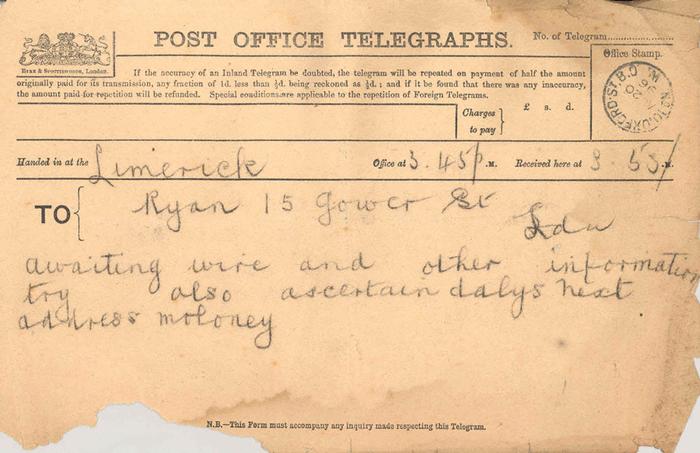 POST OFFICE TELEGRAPHS.
No. of Telegram
Office Stamp.
EYRE & SPOTTISWOODE, London.
If the accuracy of an Inland Telegram be doubted, the telegram will be repeated on payment of half the amount
originally paid for its transmission, any fraction of 1d. less than ½d. being reckoned as ½d.; and if it be found that there was any inaccuracy,
the amount paid for repetition will be refunded. Special conditions are applicable to the repetition of Foreign Telegrams.
Charges to pay
£ s. d.
Handed in at the Limerick Office at 3.45 p.M. Received here at 3.53 .M.
TO Ryan 15 Gower St
Ldn
awaiting wire and other information
try also ascertain dalys next
address moloney
N.B.—This Form must accompany any inquiry made respecting this Telegram.